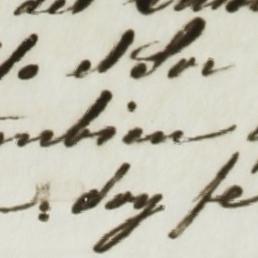 del
lo el Sor
ambien
: doy fé